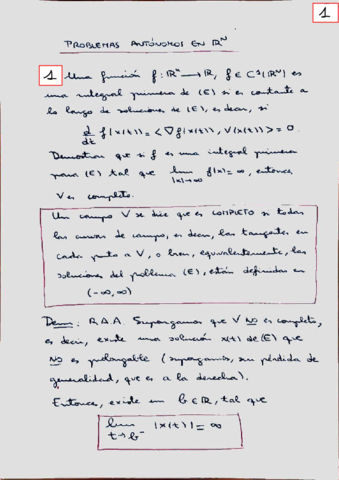 1
PROBLEMAS AUTÓNOMOS EN ℝᴺ
1 Una función f: ℝᴺ → ℝ, f ∈ C¹(ℝᴺ) es
una integral primera de (E) si es constante a
lo largo de soluciones de (E), es decir, si
d/dt f(x(t)) = < ∇f(x(t)), V(x(t)) > = 0.
Demostrar que si f es una integral primera
para (E) tal que lim |x|→∞ f(x) = ∞, entonces
V es completo.
Un campo V se dice que es COMPLETO si todas
las curvas de campo, es decir, las tangentes en
cada punto a V, o bien, equivalentemente, las
soluciones del problema (E), están definidas en
(-∞, ∞)
Dem: R.A.A. Supongamos que V NO es completo,
es decir, existe una solución x(t) de (E) que
NO es prolongable (supongamos, sin pérdida de
generalidad, que es a la derecha).
Entonces, existe un b ∈ ℝ, tal que
lim t→b⁻ |x(t)| = ∞